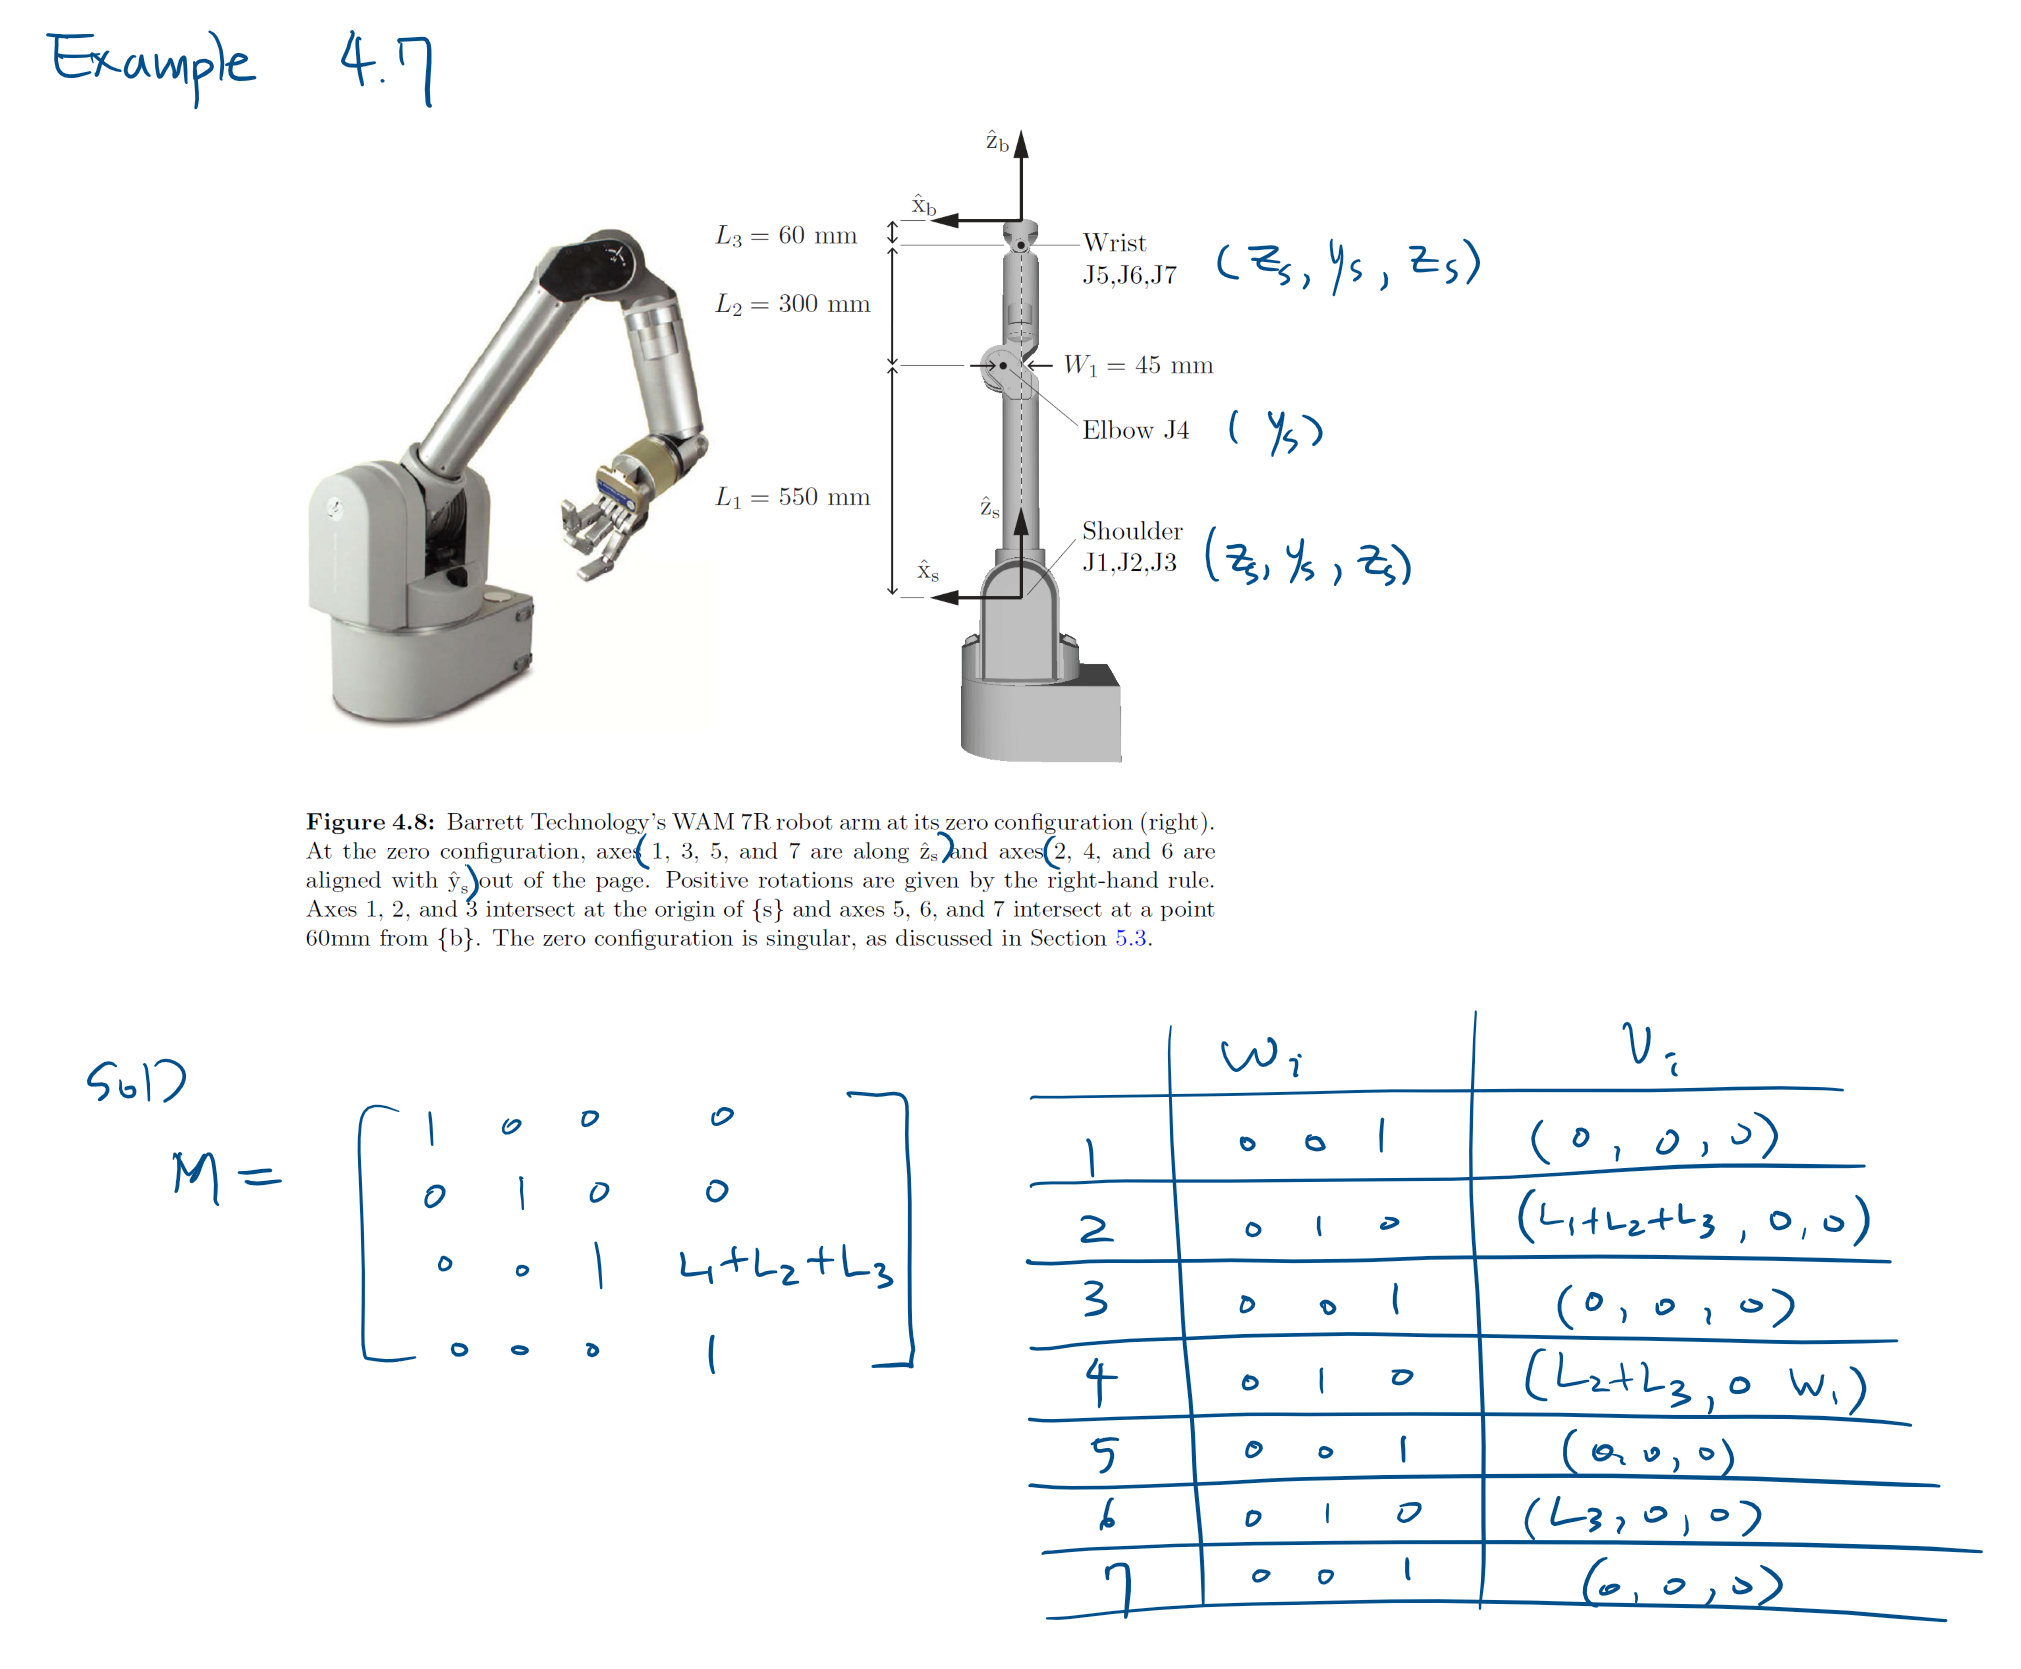 Example 4.7
ẑb
x̂b
L3 = 60 mm
Wrist
J5,J6,J7 (zs, ys, zs)
L2 = 300 mm
W1 = 45 mm
Elbow J4 (ys)
L1 = 550 mm
ẑs
Shoulder
J1,J2,J3 (zs, ys, zs)
x̂s
Figure 4.8: Barrett Technology's WAM 7R robot arm at its zero configuration (right).
At the zero configuration, axes (1, 3, 5, and 7 are along ẑs) and axes (2, 4, and 6 are
aligned with ŷs) out of the page. Positive rotations are given by the right-hand rule.
Axes 1, 2, and 3 intersect at the origin of {s} and axes 5, 6, and 7 intersect at a point
60mm from {b}. The zero configuration is singular, as discussed in Section 5.3.
Sol)
M =
1 0 0 0
0 1 0 0
0 0 1 L1+L2+L3
0 0 0 1
wi vi
1 0 0 1 (0, 0, 0)
2 0 1 0 (L1+L2+L3, 0, 0)
3 0 0 1 (0, 0, 0)
4 0 1 0 (L2+L3, 0 W1)
5 0 0 1 (0, 0, 0)
6 0 1 0 (L3, 0, 0)
7 0 0 1 (0, 0, 0)